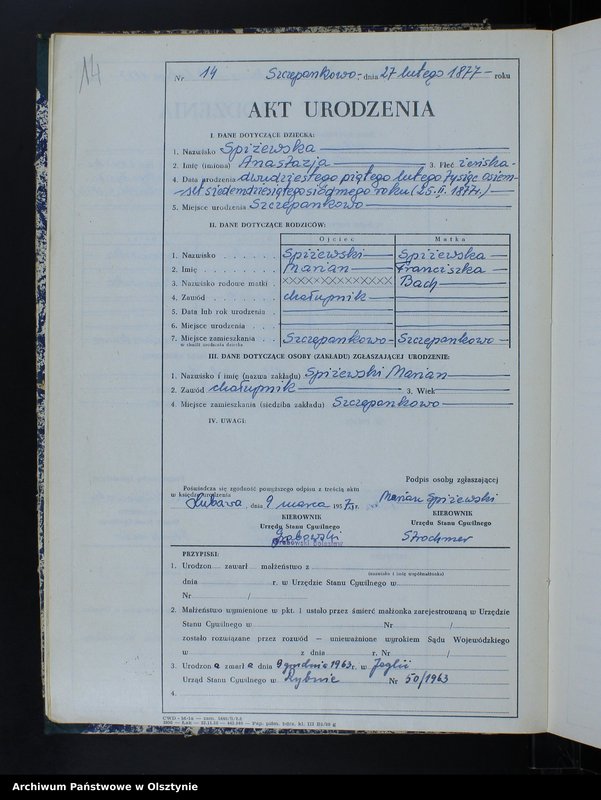 14
Nr 14 Szczepankowo, dnia 27 lutego 1877 roku
AKT URODZENIA
I. DANE DOTYCZĄCE DZIECKA:
1. Nazwisko Spiżewska
2. Imię (imiona) Anastazja 3. Płeć żeńska
4. Data urodzenia dwudziestego piątego lutego tysiąc osiem-
set siedemdziesiątego siódmego roku (25.II.1877r.)
5. Miejsce urodzenia Szczepankowo
II. DANE DOTYCZĄCE RODZICÓW:
Ojciec Matka
1. Nazwisko Spiżewski Spiżewska
2. Imię Marian Franciszka
3. Nazwisko rodowe matki XXXXXXXXXXXX Bach
4. Zawód chałupnik
5. Data lub rok urodzenia
6. Miejsce urodzenia
7. Miejsce zamieszkania Szczepankowo Szczepankowo
w chwili urodzenia dziecka
III. DANE DOTYCZĄCE OSOBY (ZAKŁADU) ZGŁASZAJĄCEJ URODZENIE:
1. Nazwisko i imię (nazwa zakładu) Spiżewski Marian
2. Zawód chałupnik 3. Wiek
4. Miejsce zamieszkania (siedziba zakładu) Szczepankowo
IV. UWAGI:
Poświadcza się zgodność powyższego odpisu z treścią aktu
w księdze urodzenia
Podpis osoby zgłaszającej
Lubawa, dnia 9 marca 1957 r.
Marian Spiżewski
KIEROWNIK
Urzędu Stanu Cywilnego
Grabowski
KIEROWNIK
Urzędu Stanu Cywilnego
Strochmer
PRZYPISKI:
1. Urodzon zawarł małżeństwo z
(nazwisko i imię współmałżonka)
dnia r. w Urzędzie Stanu Cywilnego w
Nr /
2. Małżeństwo wymienione w pkt. 1 ustało przez śmierć małżonka zarejestrowaną w Urzędzie
Stanu Cywilnego w Nr /
zostało rozwiązane przez rozwód — unieważnione wyrokiem Sądu Wojewódzkiego
w z dnia r. Nr /
3. Urodzona zmarła dnia 9 grudnia 1963 r. w Jeglii
Urząd Stanu Cywilnego w Rybnie Nr 50/1963
4.
Archiwum Państwowe w Olsztynie